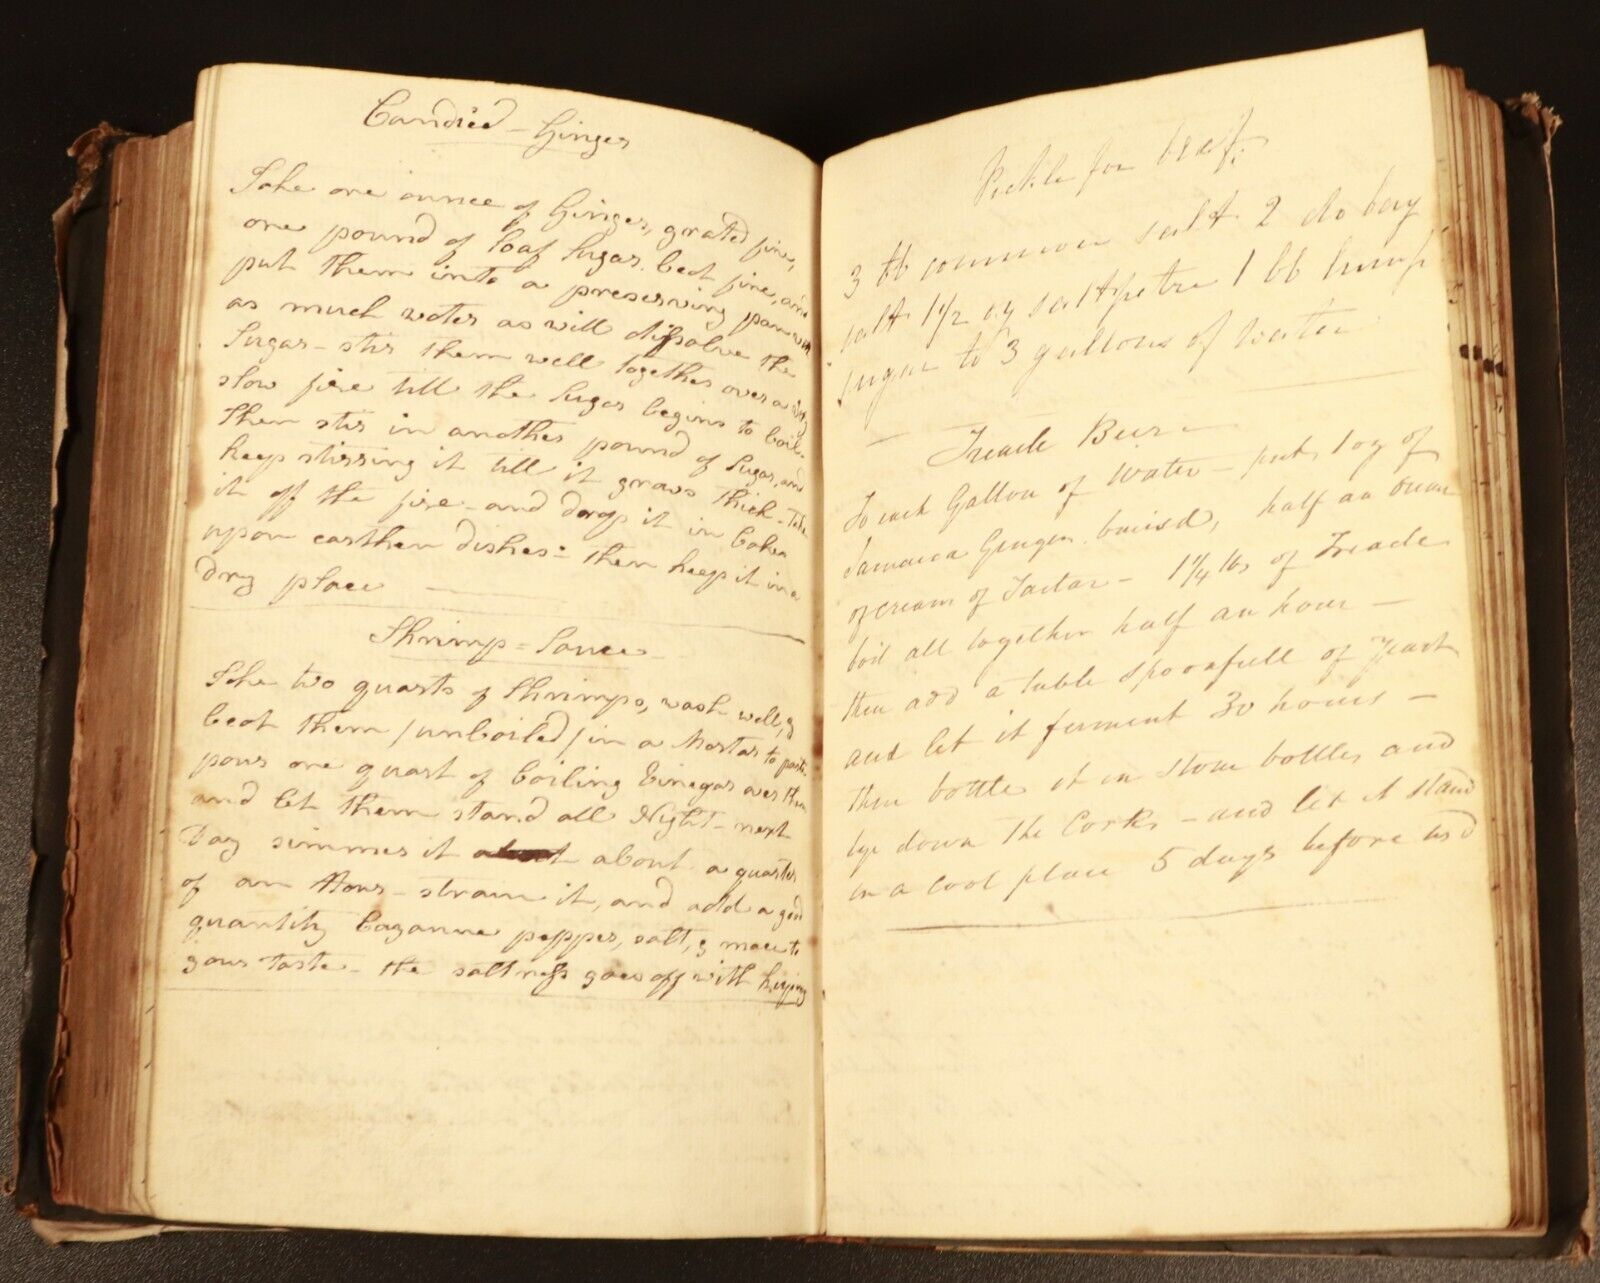 Candied - Ginger
Take one ounce of Ginger, grated fine,
one pound of loaf Sugar beat fine, and
put them into a preserving pan with
as much water as will dissolve the
Sugar - stir them well together over a very
slow fire till the Sugar begins to boil.
Then stir in another pound of Sugar, and
keep stirring it till it grows thick - Take
it off the fire - and drop it in Cakes
upon earthen dishes: - then keep it in a
dry place
Shrimp = Sauce
Take two quarts of Shrimps, wash well, &
beat them /unboiled/ in a Mortar to paste.
pour one quart of boiling Vinegar over them
and let them stand all Night - next
Day simmer it about a quarter
of an Hour - strain it, and add a good
quantity Cayanne pepper, salt, & mace to
your taste - the saltness goes off with keeping
Pickle for beaf:
3 lb common salt 2 do bay
salt 1 1/2 oz saltpetre 1 lb lump
sugar to 3 gallons of water.
- Treacle Beer -
To each Gallon of Water put 1 oz of
Jamaica Ginger bruisd, half an ounce
of cream of Tartar - 1 1/4 lbs of Treacle
boil all together half an hour -
then add a table spoonfull of Yeast
and let it ferment 30 hours -
then bottle it in stone bottles and
tye down the Corks - and let it stand
in a cool place 5 days before usd